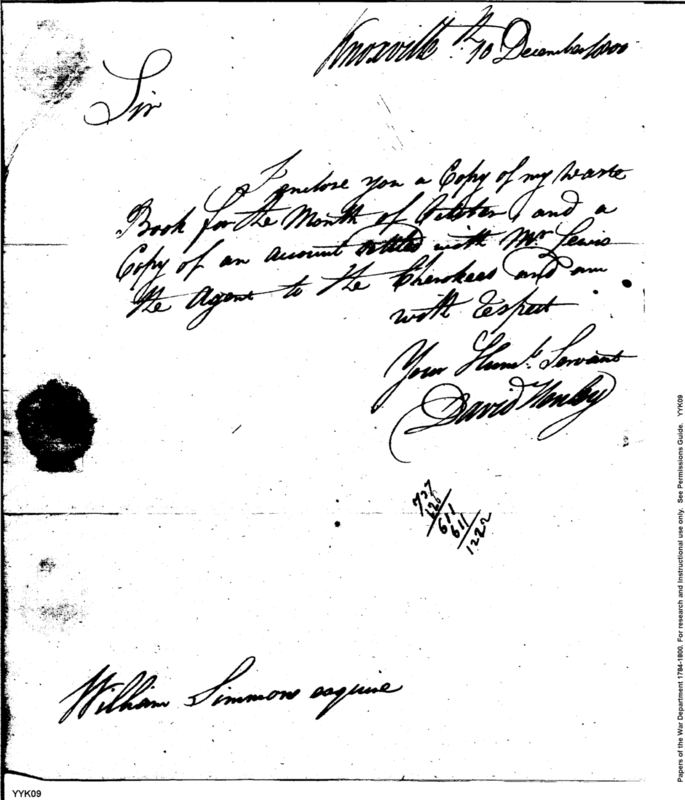 Knoxville Tn 10 December 1800
Sir
I enclose you a Copy of my Waste
Book for the Month of October, and a
Copy of an account settled with Mr Lewis
the Agent to the Cherokees and am
with respect
Your Humle. Servant
David Henley
727
611
611
1222
William Simmons esquire
Papers of the War Department 1784-1800. For research and instructional use only. See Permissions Guide. YYK09
YYK09